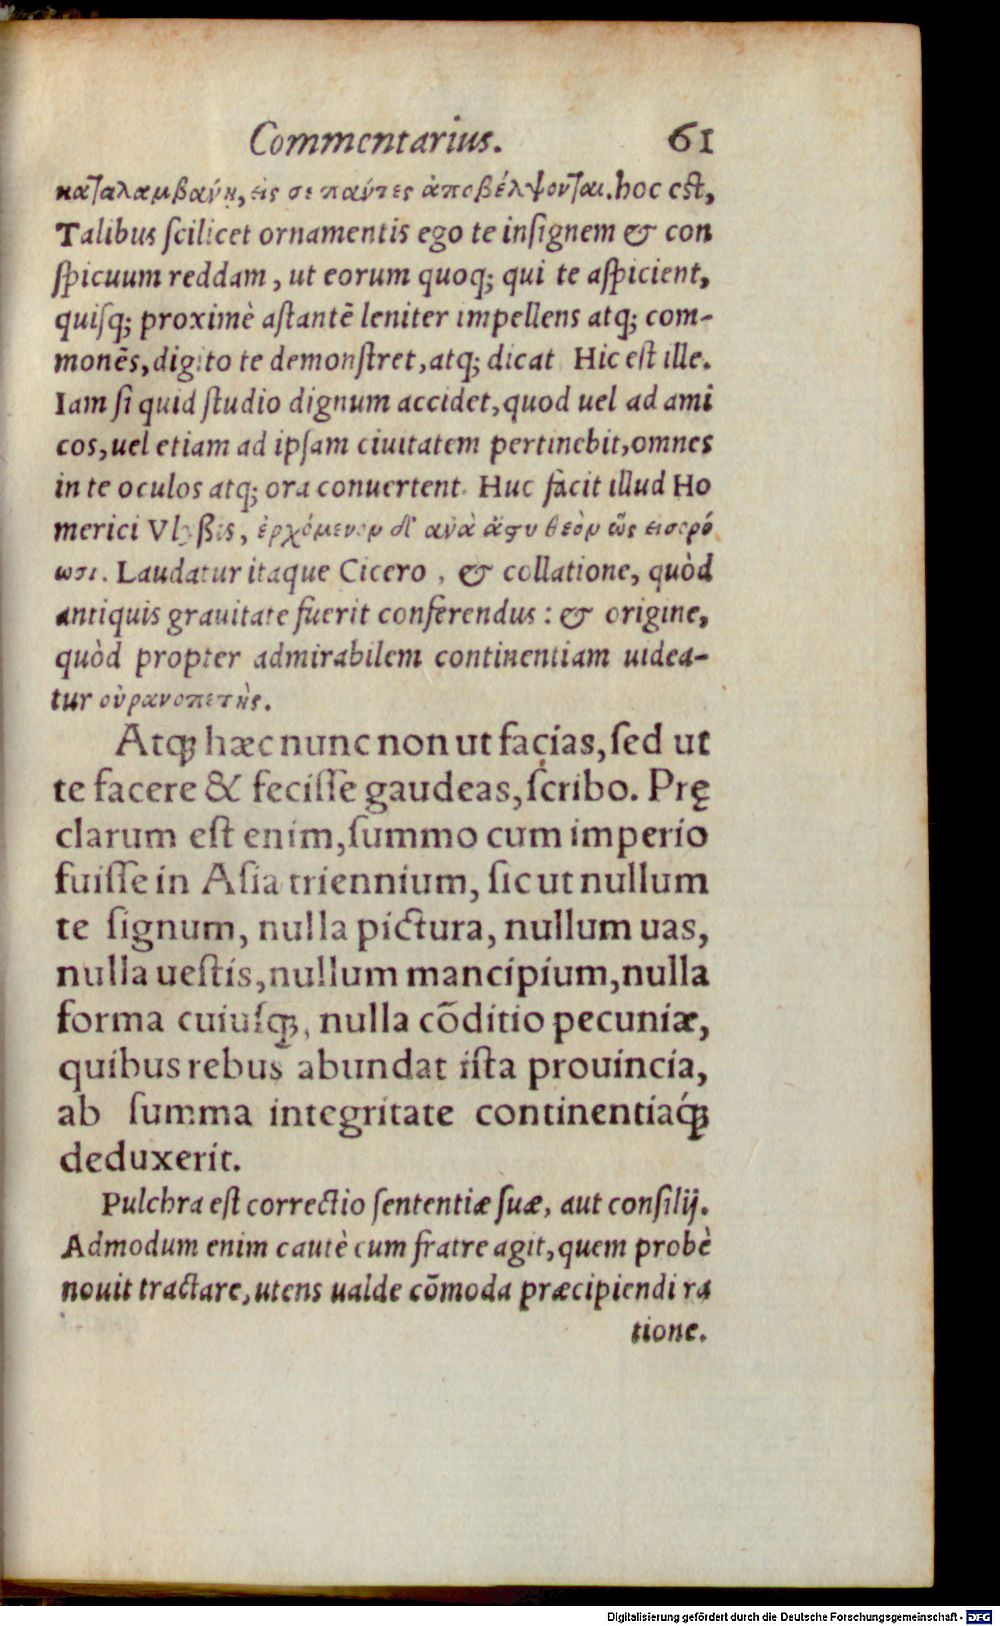 Commentarius. 61
καταλαμβανῃ, εἰς σε παντες ἀποβέλψονται. hoc est,
Talibus ſcilicet ornamentis ego te inſignem & con
ſpicuum reddam, ut eorum quoq; qui te aſpicient,
quiſq; proximè aſtantē leniter impellens atq; com-
monēs, digito te demonſtret, atq; dicat Hic eſt ille.
Iam ſi quid ſtudio dignum accidet, quod uel ad ami
cos, uel etiam ad ipſam ciuitatem pertinebit, omnes
in te oculos atq; ora conuertent. Huc facit illud Ho
merici Vlyßis, ἐρχόμενον δ' ἀνὰ ἄστυ θεὸν ὣς εἰσορό
ωσι. Laudatur itaque Cicero, & collatione, quòd
antiquis grauitate fuerit conferendus: & origine,
quòd propter admirabilem continentiam uidea-
tur οὐρανοπετὴς.
Atq; hæc nunc non ut facias, ſed ut
te facere & feciſſe gaudeas, ſcribo. Prę
clarum eſt enim, ſummo cum imperio
fuiſſe in Aſia triennium, ſic ut nullum
te ſignum, nulla pictura, nullum uas,
nulla ueſtis, nullum mancipium, nulla
forma cuiuſq;, nulla cōditio pecuniæ,
quibus rebus abundat iſta prouincia,
ab ſumma integritate continentiaq́;
deduxerit.
Pulchra eſt correctio ſententiæ ſuæ, aut conſilij.
Admodum enim cautè cum fratre agit, quem probè
nouit tractare, utens ualde cōmoda præcipiendi ra
tione.
Digitalisierung gefördert durch die Deutsche Forschungsgemeinschaft - DFG